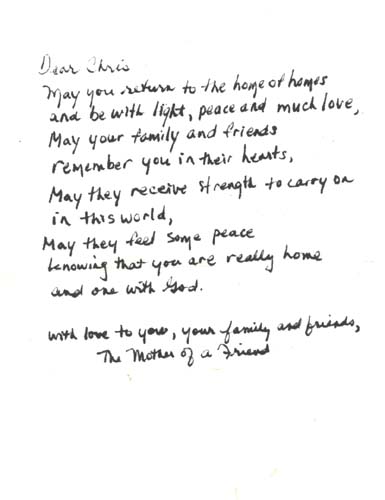 Dear Chris
May you return to the home of homes
and be with light, peace and much love,
May your family and friends
remember you in their hearts,
May they receive strength to carry on
in this world,
May they feel some peace
knowing that you are really home
and one with God.
with love to you, your family and friends,
The Mother of a Friend